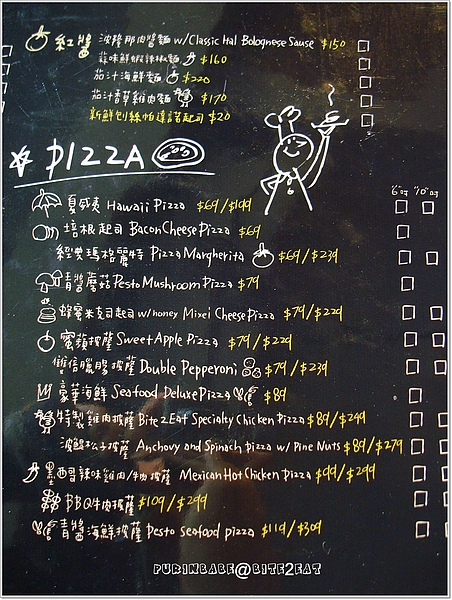 紅醬 波隆那肉醬麵 w/Classic Ital Bolognese Sause $150
蒜味鮮蝦辣椒麵 $160
茄汁海鮮麵 $220
茄汁香草雞肉麵 $170
新鮮刨絲帕達諾起司 $20
PIZZA
6吋 10吋
夏威夷 Hawaii Pizza $69/$199
培根起司 Bacon Cheese Pizza $69
經典瑪格麗特 Pizza Margherita $69/$239
青醬蘑菇 Pesto Mushroom Pizza $79
蜂蜜米克司起司 w/honey Mixei Cheese Pizza $79/$229
蜜蘋披薩 Sweet Apple Pizza $79/$229
雙倍臘腸披薩 Double Pepperoni $79/$239
豪華海鮮 Seafood Deluxe Pizza $89
特製雞肉披薩 Bite 2 Eat Specialty Chicken Pizza $89/$249
波鯷松子披薩 Anchovy and Spinach pizza w/ Pine Nuts $89/$279
墨西哥辣味雞肉/牛肉披薩 Mexican Hot Chicken Pizza $99/$299
BBQ牛肉披薩 $109/$299
青醬海鮮披薩 Pesto Seafood pizza $119/$309
PURINBABE@BITE2EAT